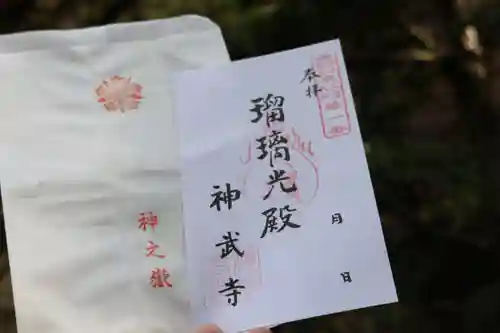 奉拝
瑠璃光殿
月
日
神武寺
神之嶽